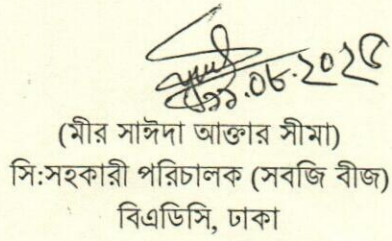 ২১.০৮.২০২৫
(মীর সাঈদা আক্তার সীমা)
সি:সহকারী পরিচালক (সবজি বীজ)
বিএডিসি, ঢাকা